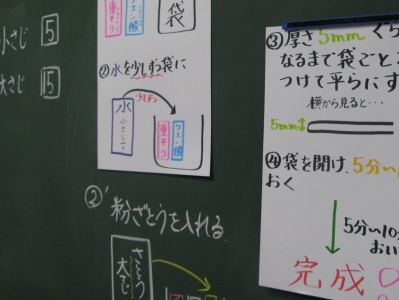 小さじ 5
大さじ 15
重そう
クエン酸
袋
②水を少しずつ袋に
少しずつ
水
小さじ
重そう
クエン酸
②'粉ざとうを入れる。
さとう
大さじ
③厚さ5mmぐら
なるまで袋ごと
つけて平らにす
横から見ると…
5mm
④袋を開け、5分〜
おく
5分〜10
おい
完成